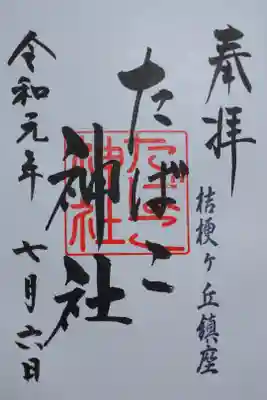 奉拝
桔梗ヶ丘鎮座
たばこ
神社
たばこ神社
令和元年 七月六日